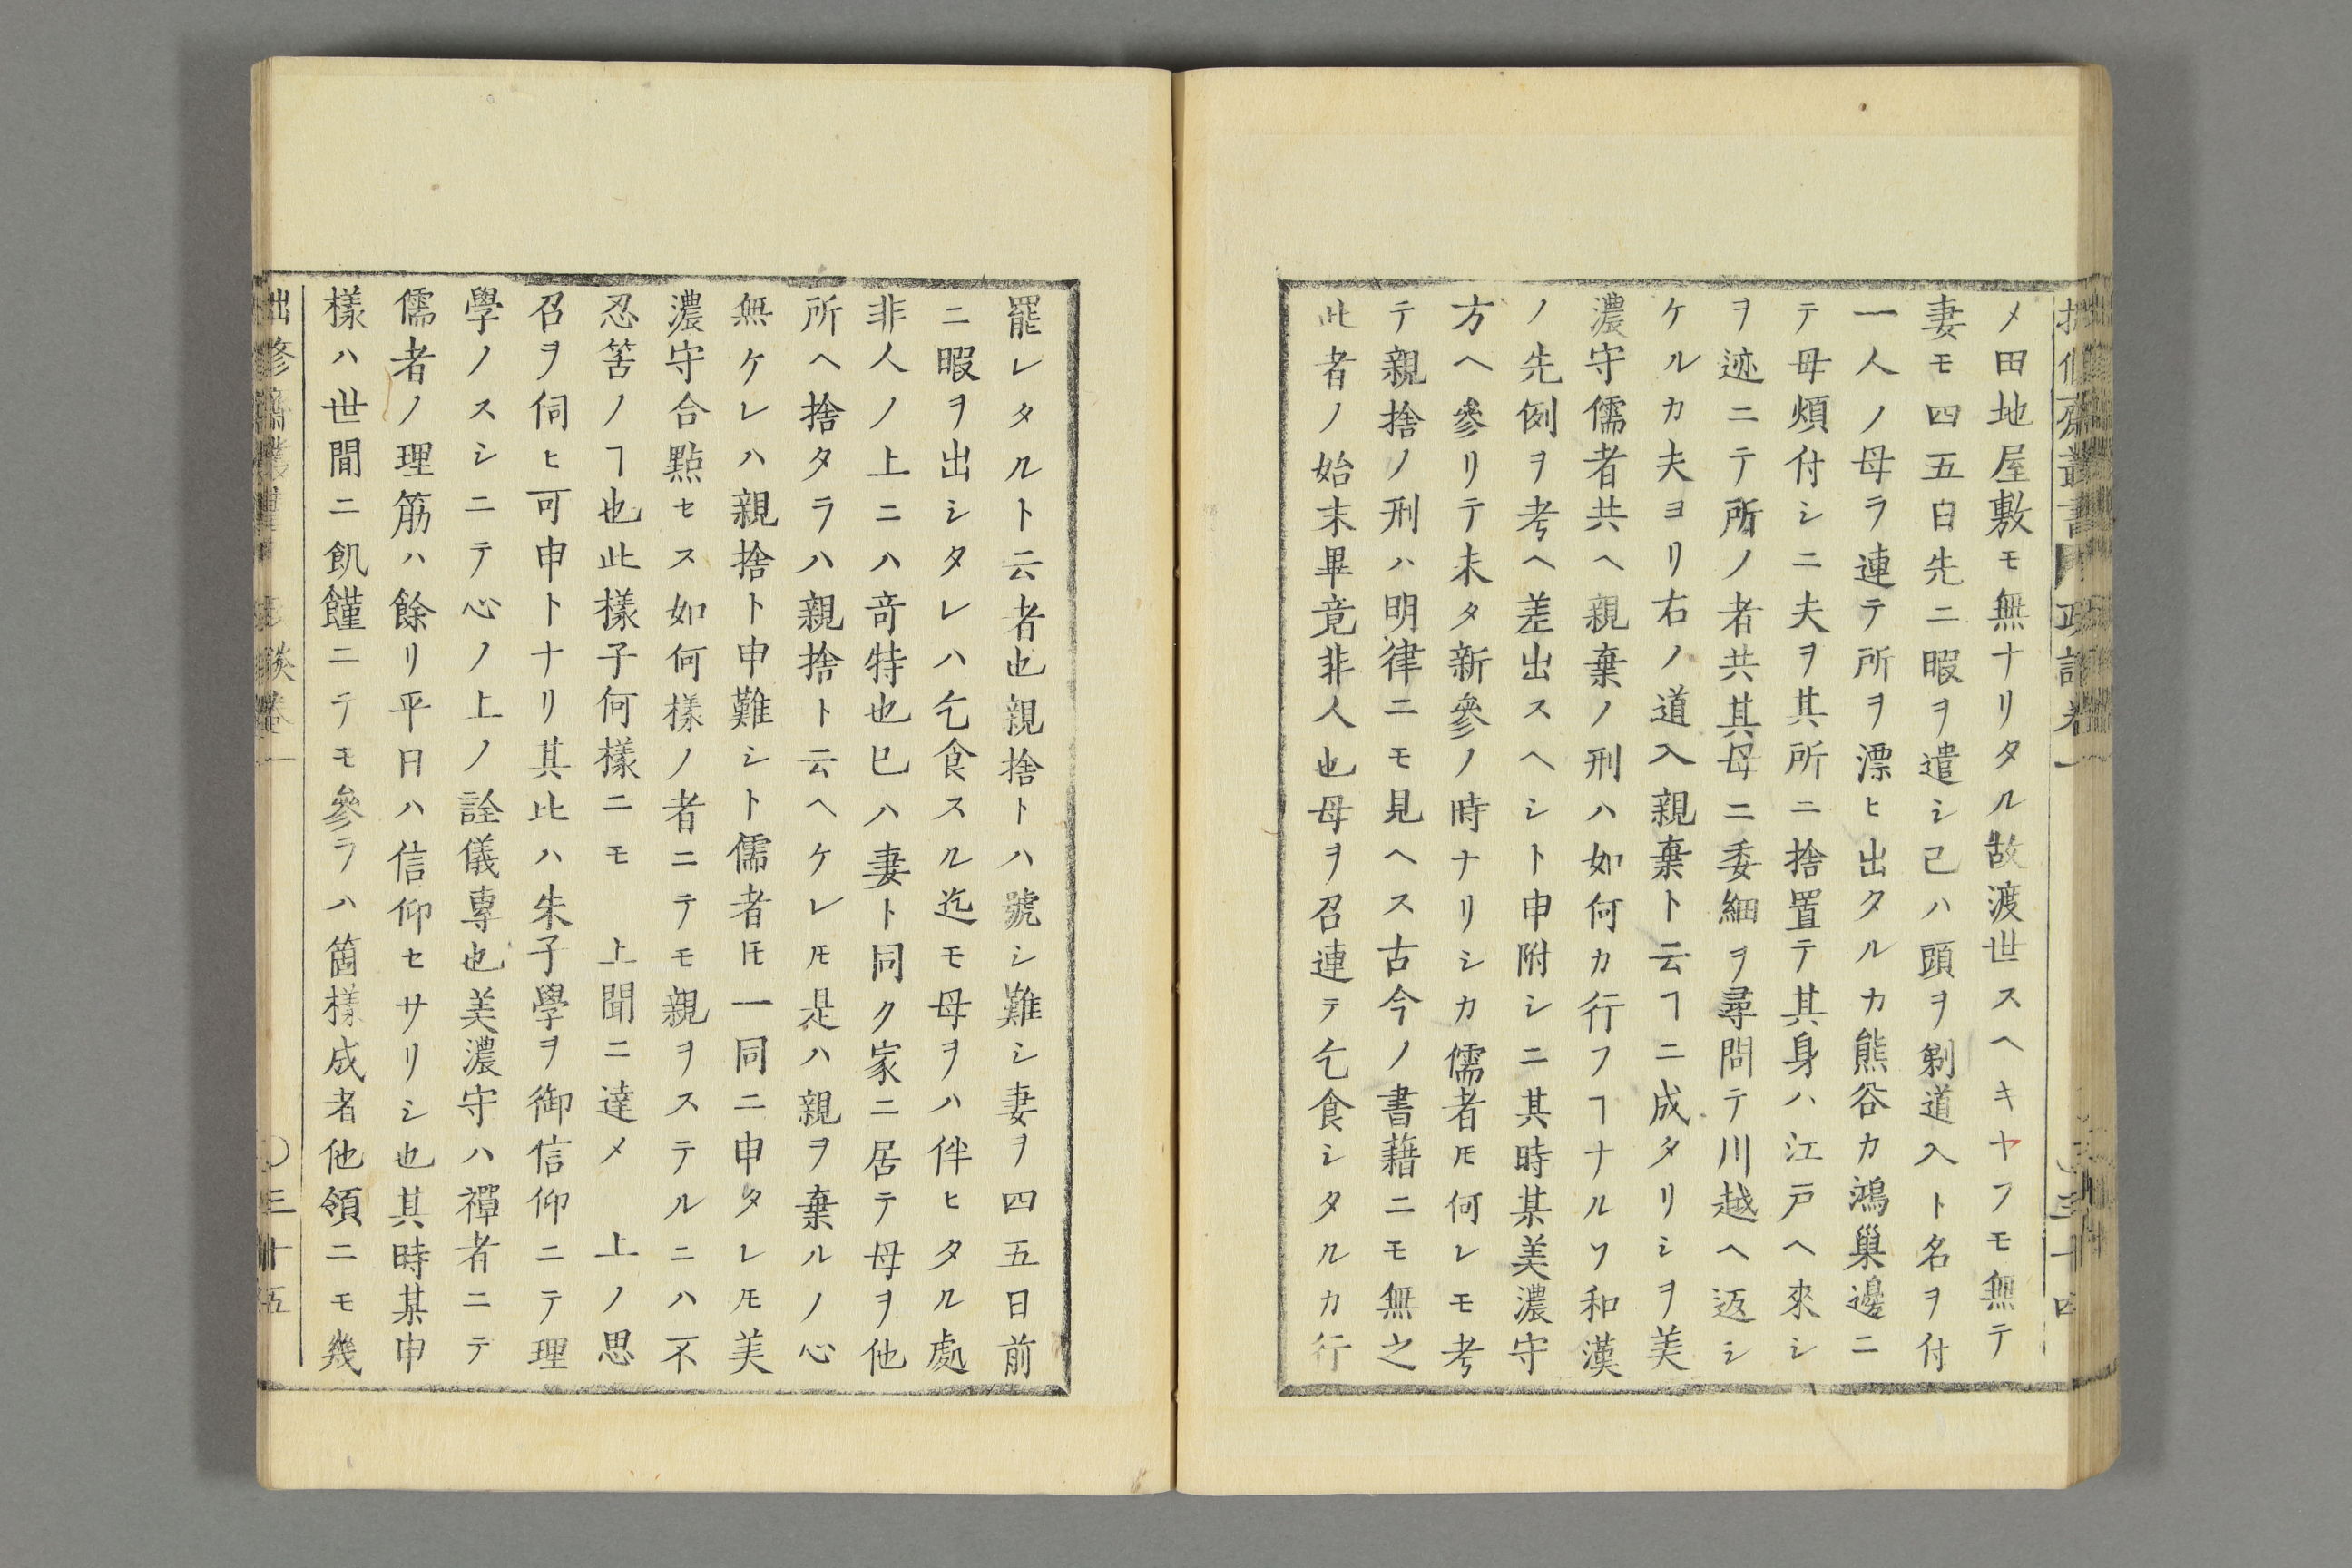 メ田地屋敷モ無ナリタル故渡世スヘキヤフモ無テ
妻モ四五日先ニ暇ヲ遣シ己ハ頭ヲ剃道入ト名ヲ付
一人ノ母ヲ連テ所ヲ漂ヒ出タルカ熊谷カ鴻巢邊ニ
テ母煩付シニ夫ヲ其所ニ捨置テ其身ハ江戸ヘ來シ
ヲ迹ニテ所ノ者共其母ニ委細ヲ尋問テ川越ヘ返シ
ケルカ夫ヨリ右ノ道入親棄ト云ヿニ成タリシヲ美
濃守儒者共ヘ親棄ノ刑ハ如何カ行フヿナルソ和漢
ノ先例ヲ考ヘ差出スヘシト申附シニ其時某美濃守
方ヘ參リテ未タ新參ノ時ナリシカ儒者𪜈何レモ考
テ親捨ノ刑ハ明律ニモ見ヘス古今ノ書藉ニモ無之
此者ノ始末畢竟非人也母ヲ召連テ乞食シタルカ行
罷レタルト云者也親捨トハ號シ難シ妻ヲ四五日前
ニ暇ヲ出シタレハ乞食スル迄モ母ヲハ伴ヒタル處
非人ノ上ニハ竒特也巳ハ妻ト同ク家ニ居テ母ヲ他
所ヘ捨タラハ親捨ト云ヘケレ𪜈是ハ親ヲ棄ルノ心
無ケレハ親捨ト申難シト儒者𪜈一同ニ申タレ𪜈美
濃守合點セス如何樣ノ者ニテモ親ヲステルニハ不
忍筈ノヿ也此樣子何樣ニモ　上聞ニ達メ　上ノ思
召ヲ伺ヒ可申トナリ其比ハ朱子學ヲ御信仰ニテ理
學ノスシニテ心ノ上ノ詮儀專也美濃守ハ禪者ニテ
儒者ノ理筋ハ餘リ平日ハ信仰セサリシ也其時某申
樣ハ世間ニ飢饉ニテモ參ラハ箇樣成者他領ニモ幾